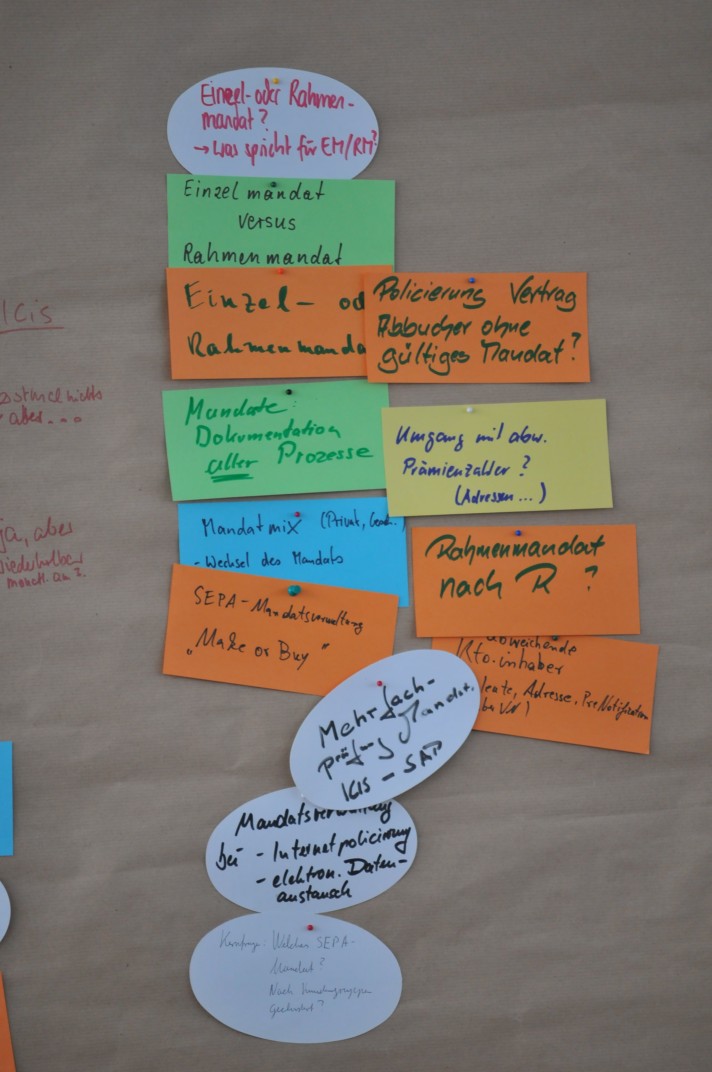 Einzel- oder Rahmen-
mandat?
→ Was spricht für EM/RM?
Einzelmandat
versus
Rahmenmandat
Einzel- od
Rahmenmanda
Policierung Vertrag
Abbucher ohne
gültiges Mandat?
Mandate:
Dokumentation
aller Prozesse
Umgang mit abw.
Prämienzahler?
(Adressen...)
Mandatmix (Privat,
- Wechsel des Mandats
Rahmenmandat
nach R ?
SEPA-Mandatsverwaltung
"Make or Buy"
abweichende
Kto.inhaber
Adresse, PreNotification
VN)
Mehrfach-
prüfung Mandat.
ICIS - SAP
Mandatsverwaltung
bei - Internetpolicierung
- elektron. Daten-
austausch
Welches SEPA-
Mandat?
Nach
ICIS
nichts
aber...
ja, aber
monatl. an?